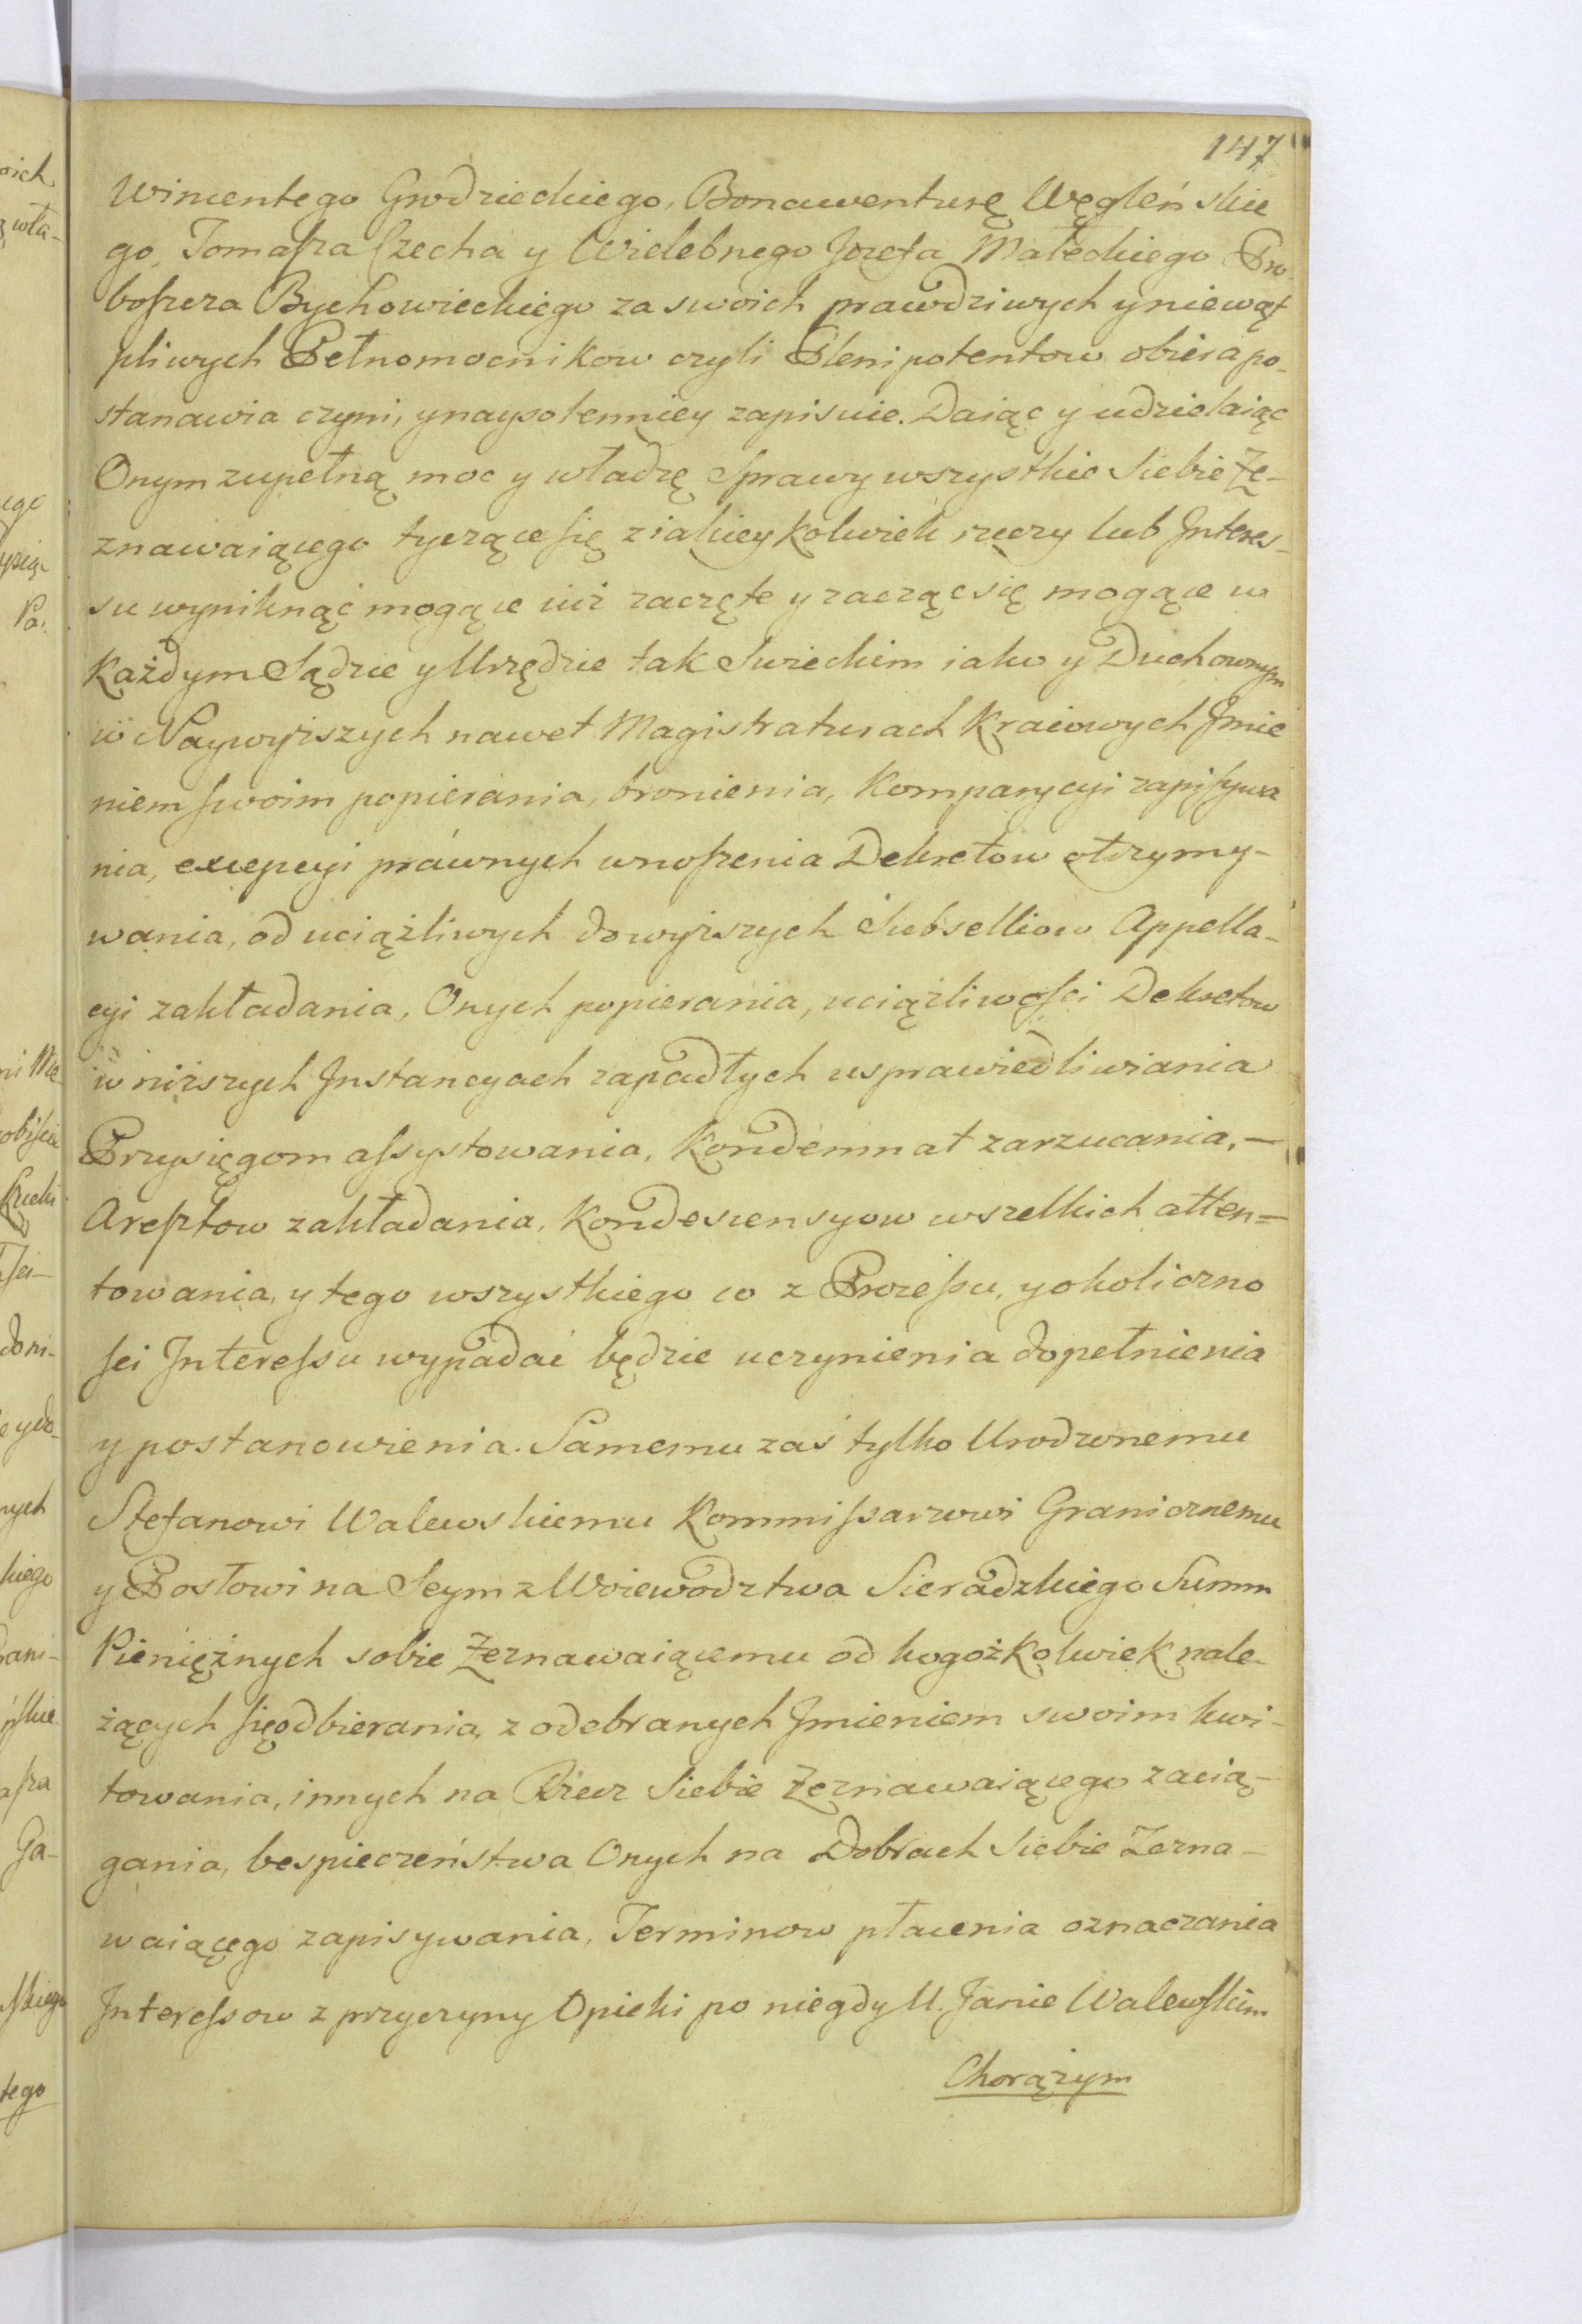 147
Wincentego Grodzieckiego, Bonawenturę Węgleńskie
go, Tomaſza Czecha y Wielebnego Jozefa Małeckiego Pro-
boſzcza Bychowieckiego za swoich prawdziwych y niewąt
pliwych Pełnomocnikow czyli Plenipotentow obiera po-
stanawia czyni, y naysolenniey zapisuie. Daiąc y udzielaiąc
Onym zupełną moc y władzę Sprawy wszystkie Siebie Ze-
znawaiącego tyczące się z iakieykolwiek rzeczy lub Jnteres-
su wyniknąć mogące iuż zaczęte y zacząć się mogące w
każdym Sądzie y Urzędzie tak Swieckim iako y Duchownym
w Naywyższych nawet Magistraturach Kraiowych Jmie
niem swoim popierania, bronienia, Komparycyi zapiſywa
nia, excepcyi prawnych wnoſzenia Dekretow otrzymy-
wania, od uciążliwych do wyższych Subselliow Appella-
cyi zakładania, Onych popierania, uciążliwoſci Dekretow
w niższych Jnstancyach zapadłych usprawiedliwiania
Przysięgom aſsystowania, Kondemnat zarzucania, –
Areſztow zakładania, Kondescensyow wszelkich atten=
towania, y tego wszystkiego co z Proceſsu, y okoliczno
ſci Jntereſsu wypadać będzie uczynienia dopełnienia
y postanowienia. Samemu zaś tylko Urodzonemu
Stefanowi Walewskiemu Kommiſsarzowi Granicznemu
y Posłowi na Seym z Woiewodztwa Sieradzkiego Summ
Pieniężnych sobie Zeznawaiącemu od kogożkolwiek nale-
żących się odbierania, z odebranych Jmieniem swoim kwi-
towania, innych na Rzecz Siebie Zeznawaiącego zacią-
gania, bespieczeństwa Onych na Dobrach Siebie Zezna-
waiącego zapisywania, Terminow płacenia oznaczania
Jntereſsow z przyczyny Opieki po niegdy U. Janie Walewſkim
Chorążym